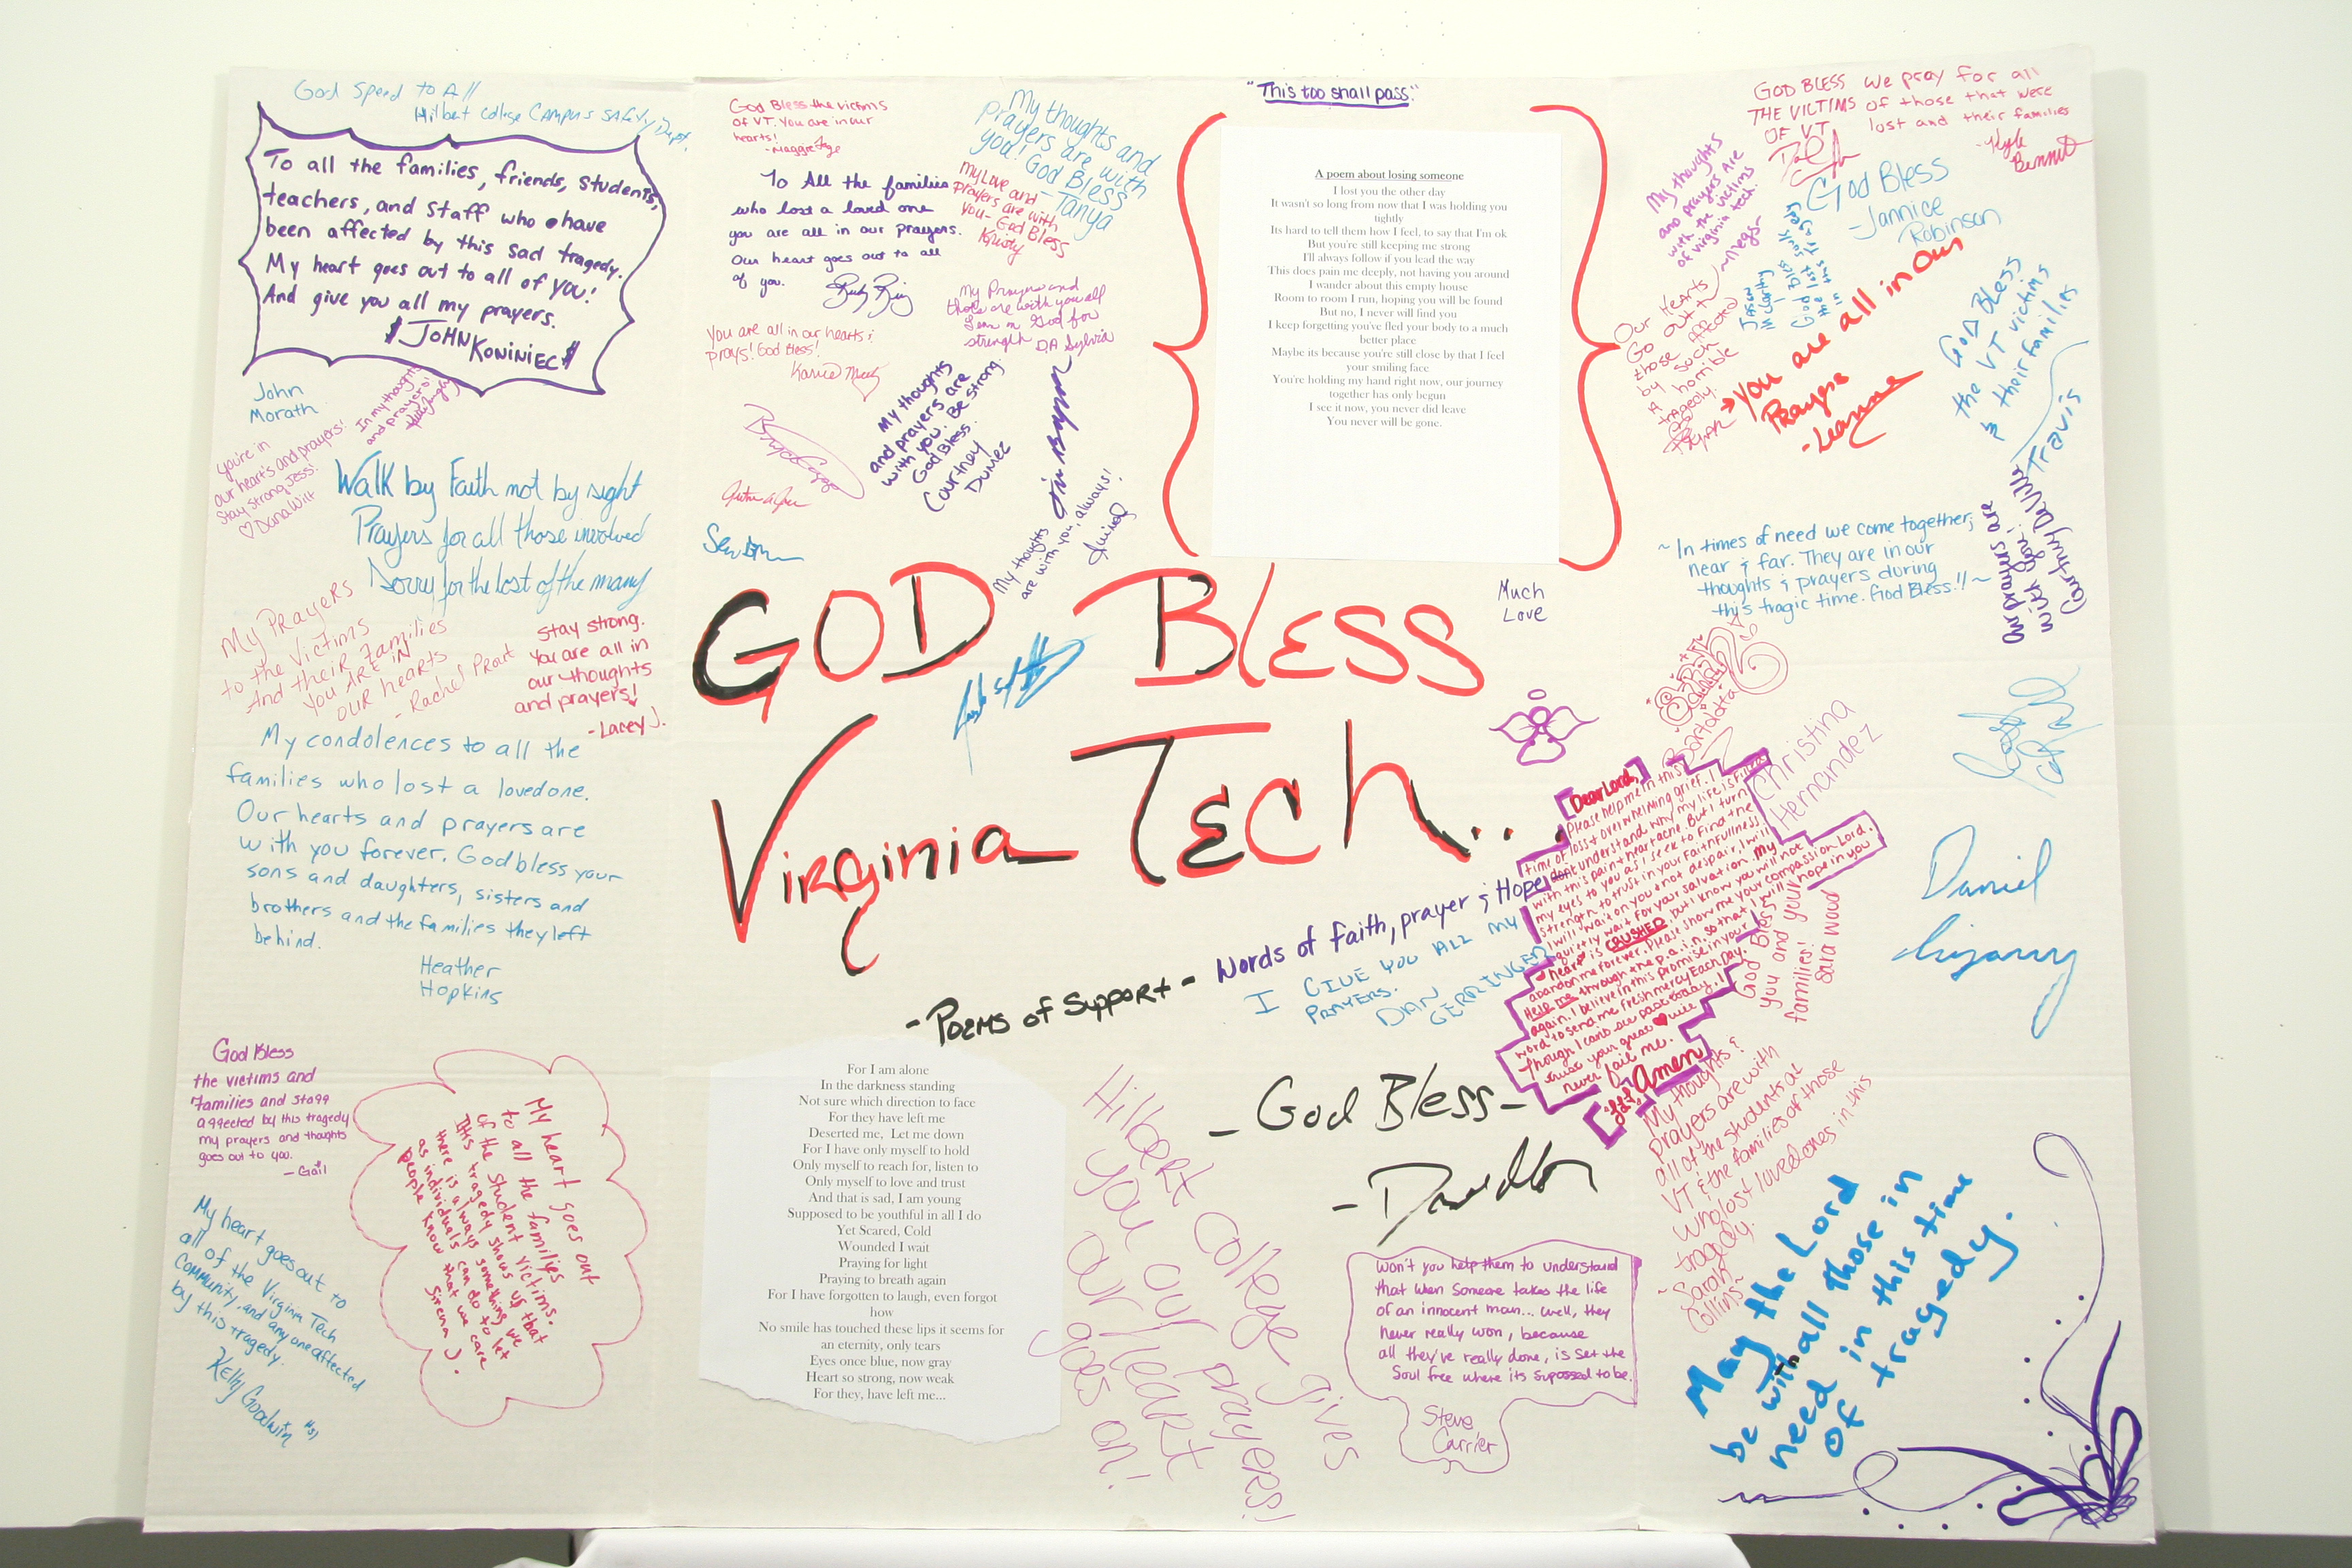 God Speed to All
Hilbert College Campus Safety Dept.
To all the families, friends, students,
teachers, and staff who have
been affected by this sad tragedy.
My heart goes out to all of you!
And give you all my prayers.
JOHN KONINIEC
John
Morath
In my thoughts
and prayers!
you're in
our heart's and prayers!
Stay strong, Jess!
♡ Dana Wilt
Walk by Faith not by sight
Prayers for all those involved
Sorry for the lost of the many
My PRAYERS
to the Victims
And their Families
You ARE IN
OUR hearts
- Rachel Prout
Stay strong.
You are all in
our thoughts
and prayers!
- Lacey J.
My condolences to all the
families who lost a loved one.
Our hearts and prayers are
with you forever. God bless your
sons and daughters, sisters and
brothers and the families they left
behind.
Heather
Hopkins
God Bless
the victims and
Families and Staff
affected by this tragedy
my prayers and thoughts
goes out to you.
- Gail
My heart goes out
to all the families
of the student victims.
This tragedy shows us that
there is always something we
as individuals can do to let
people know that we care
Sirena J.
My heart goes out to
all of the Virginia Tech
Community, and anyone affected
by this tragedy.
Kelly Goodwin
#51
God Bless the victims
of VT. You are in our
hearts!
My thoughts and
prayers are with
you! God Bless
- Tanya
To All the families
who lost a loved one
you are all in our prayers.
Our heart goes out to all
of you.
My Love and
prayers are with
you - God Bless
Kristy
My Prayers and
those are with you all
Lean on God for
strength D.A Sylvia
You are all in our hearts &
prays! God Bless!
My thoughts
and prayers are
with you. Be strong.
God Bless.
Courtney
Dumez
My thoughts
are with you, always!
"This too shall pass."
A poem about losing someone
I lost you the other day
It wasn't so long from now that I was holding you
tightly
Its hard to tell them how I feel, to say that I'm ok
But you're still keeping me strong
I'll always follow if you lead the way
This does pain me deeply, not having you around
I wander about this empty house
Room to room I run, hoping you will be found
But no, I never will find you
I keep forgetting you've fled your body to a much
better place
Maybe its because you're still close by that I feel
your smiling face
You're holding my hand right now, our journey
together has only begun
I see it now, you never did leave
You never will be gone.
GOD BLESS
THE VICTIMS
OF VT
We pray for all
of those that were
lost and their families
- Kyle
Bennett
My thoughts
and prayers are
with the victims
of virginia tech.
~Megs~
God Bless
- Jannice
Robinson
God Bless
the lost souls
in this tragedy
Jason
McCarthy
Our Hearts
Go out
those affected
by such
a horrible
tragedy.
→ You are all in Our
Prayers
- Leanne
God Bless
the VT victims
& their families
Travis
Our prayers are
with you!
Courtney DeVille
~ In times of need we come together;
near & far. They are in our
thoughts & prayers during
this tragic time. God Bless!! ~
Much
Love
GOD BLESS
VIRGINIA TECH...
- Poems of Support - Words of faith, prayer & Hope
I GIVE YOU ALL MY
PRAYERS.
DIAN
GERRINGER
- God Bless -
Bartolotta
Christina
Hernandez
Dear Lord,
Please help me in this
time of loss & overwhelming grief. I
dont understand why my life is filled
with this pain & heartache. But I turn
my eyes to you as I seek to find the
strength to trust in your faithfullness
I will wait on you & not despair, I will
quietly wait for your salvation. My
heart is CRUSHED, but I know you will not
abandon me forever. Please show me your compassion Lord.
Help me through the p.a.i.n. so that I will hope in you
again. I believe in this promise in your
word to send me fresh mercy Each Day.
Though I cant see past today, I
trust your great ♥ will
never fail me.
Amen
God Bless
you and your
families!
Sara Wood
Daniel
My thoughts &
prayers are with
all of the students at
VT & the families of those
who lost loved ones in this
tragedy.
~Sarah
Collins~
For I am alone
In the darkness standing
Not sure which direction to face
For they have left me
Deserted me, Let me down
For I have only myself to hold
Only myself to reach for, listen to
Only myself to love and trust
And that is sad, I am young
Supposed to be youthful in all I do
Yet Scared, Cold
Wounded I wait
Praying for light
Praying to breath again
For I have forgotten to laugh, even forgot
how
No smile has touched these lips it seems for
an eternity, only tears
Eyes once blue, now gray
Heart so strong, now weak
For they, have left me...
Hilbert College gives
you our prayers!
Our heart
goes on!
Won't you help them to understand
that when someone takes the life
of an innocent man... well, they
never really won, because
all they've really done, is set the
Soul free where its supossed to be.
Steve
Carrier
May the Lord
be with all those in
need in this time
of tragedy.